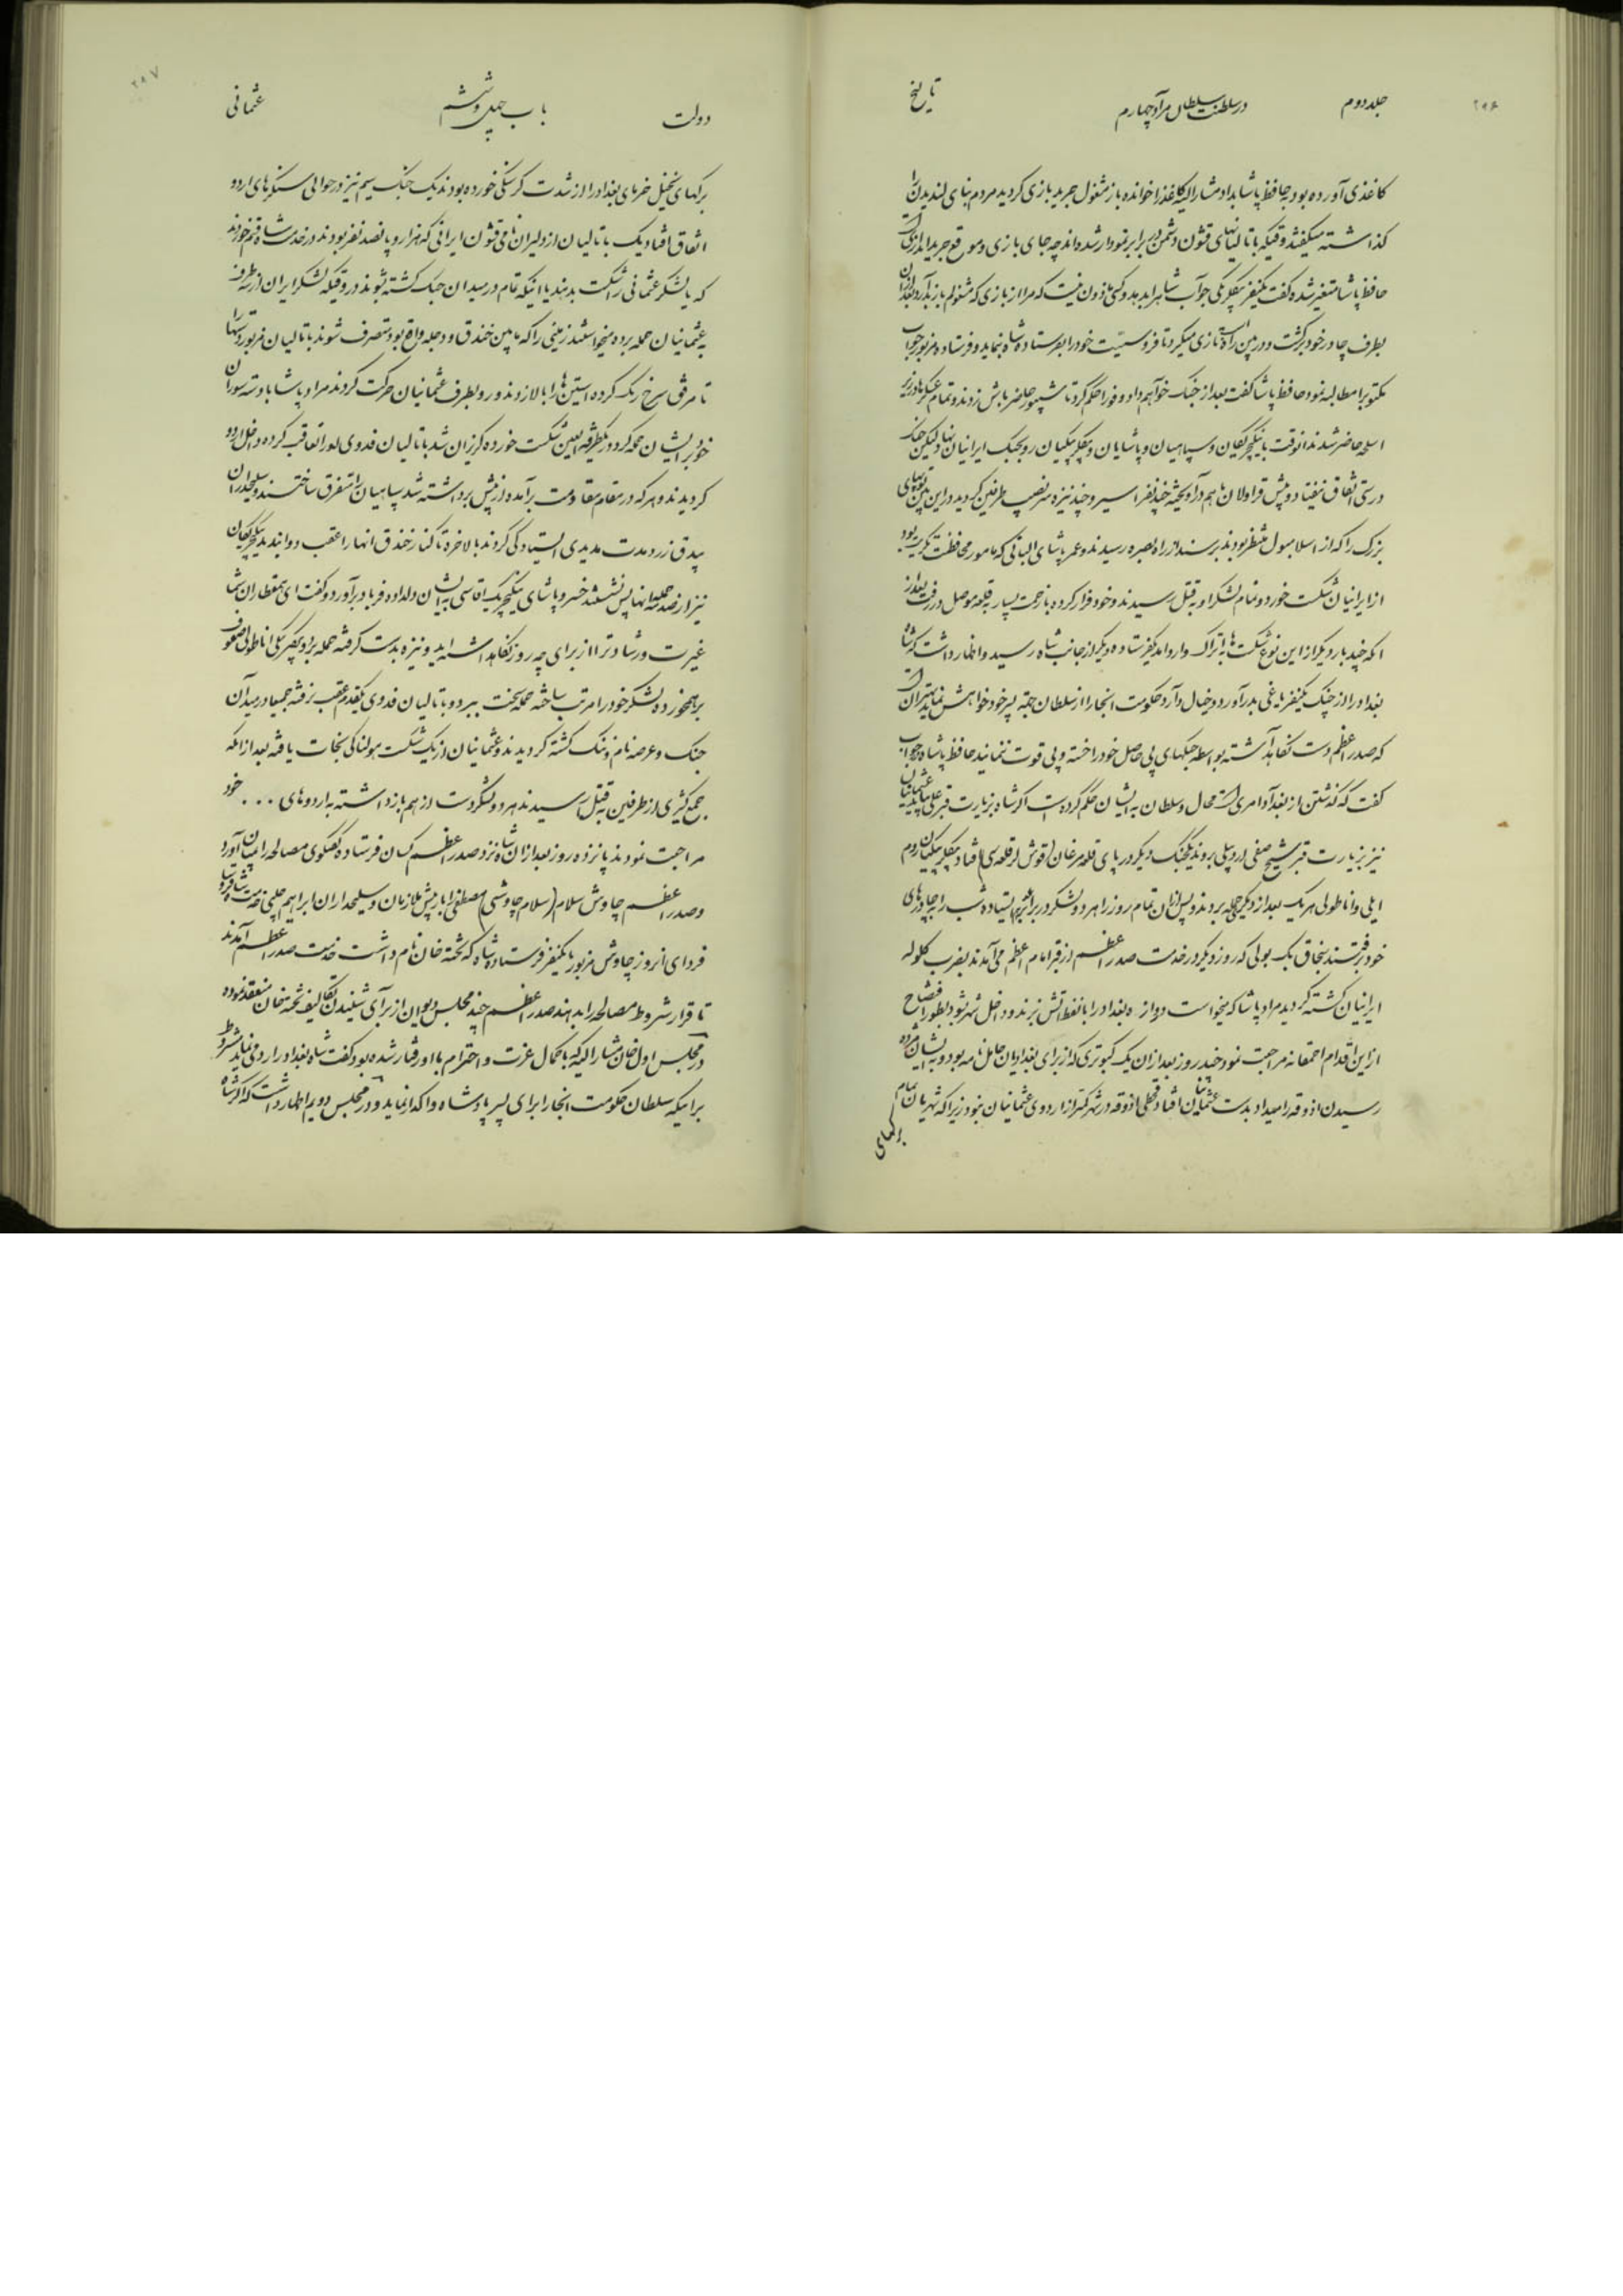 ۲۹۶
جلد دوم
در سلطنت سلطان مراد چهارم
تاریخ
کاغذی آورده بود به حافظ پاشا بداد مشارالیه کاغذ را خوانده باز مشغول جرید بازی کردید مردم بنای لندیدن را
کذاشته میکفتند وقتیکه باتالیانهای قشون دشمن در برابر نمودار شده اند چه جای بازی و موقع جرید اندازی است
حافظ پاشا متغیر شده کفت یکنفر بیکلربیکی جواب شاه را بدهد و کسی ماذون نیست که مرا از بازی که مشغولم باز بدارد بعد ازان
بطرف چادر خود برکشت و در بین راه بازی میکرد تا فروسیت خود را بفرستاده شاه بنماید و فرستاده مزبور جواب
مکتوب را مطالبه نمود حافظ پاشا کفت بعد از جنک خواهم داد و فورا حکم کرد تا شیپور حاضر باش زدند و تمام عسکرها در زیر
اسلحه حاضر شدند انوقت با ینکیچریکان و سپاهیان و پاشایان و بیکلربیکیان رو بجنک ایرانیان نهاد لیکن جنک
درستی اتفاق نیفتاد و پیش قراولان باهم در آویخته چند نفر اسیر و چند نیزه سر نصیب طرفین کردید در این بین توپهای
بزرک را که از اسلامبول منتظر بودند برسند از راه بصره رسیدند و عمر پاشای البانی که مامور محافظت کرید بود
از ایرانیان شکست خورد و تمام لشکر او به قتل رسیدند و خود فرار کرده با زحمت بسیار به قلعه موصل در رفت بعد از
انکه چند بار دیکر از این نوع شکست ها به اتراک وارد امد یکفرستاده دیکر از جانب شاه رسید و اظهار داشت که شاه
بغداد را از چنک یکنفر یاغی بدر آورد و خیال دارد حکومت انجا را از سلطان جهة پسر خود خواهش نماید بهتر ان است
که صدر اعظم دست نکاهداشته بواسطه جنکهای بی حاصل خود را خسته و بی قوت ننمایند حافظ پاشا در جواب
کفت که کذشتن از بغداد امری است محال و سلطان به ایشان حکم کرده است اکر شاه بزیارت قبر علی بیاید عثمانیان
نیز بزیارت قبر شیخ صفی اردبیلی بروند یکجنک دیکر در پای قلعه مرغان (قوش لر قلعه سی) افتاد بیکلربیکیان روم
ایلی و اناطولی هر یک بعد از دیکری حمله بردند و پس از ان تمام روز را هر دو لشکر در برابر هم ایستاده شب را بچادرهای
خود رفتند بخاق بیک بولی که روز دیکر در خدمت صدر اعظم از قبر امام اعظم می آمدند بضرب کلوله
ایرانیان کشته کردید مراد پاشا که میخواست دروازه بغداد را با نفط اتش بزند و داخل شهر شود بطور افتضاح
از این اقدام احمقانه مراجعت نمود چند روز بعد از ان یک کبوتری که از برای بغدادیان حامل نامه بود و به ایشان مژده
رسیدن اذوقه را میداد بدست عثمانیان افتاد قحطی اذوقه در شهر کمتر از اردوی عثمانیان نبود زیرا که شهریان تمام
برکهای
۲۹۷
دولت
باب چهل و ششم
عثمانی
برکهای نخیل خرمای بغداد را از شدت کرسنکی خورده بودند یک جنک سیم نیز در حوالی سنکرهای اردو
اتفاق افتاد یک باتالیان از دلیران نامی قشون ایرانی که هزار و پانصد نفر بودند در خدمت شاه قسم خوردند
که یا لشکر عثمانی را شکست بدهند یا اینکه تمام در میدان جنک کشته شوند در وقتیکه لشکر ایران از سه طرف
به عثمانیان حمله برده میخواستند زمینی را که مابین خندق و دجله واقع بود متصرف شوند باتالیان مزبور دستها را
تا مرفق سرخ رنک کرده استین ها را بالا زدند و رو بطرف عثمانیان حرکت کردند مراد پاشا با دسته سوران
خود بر ایشان حمله کرد و بیک طرفة العین شکست خورده کریزان شد باتالیان فدوی او را تعاقب کرده داخل اردو
کردیدند و هر که در مقام مقاومت برآمد از پیش برداشته شد سپاهیان را متفرق ساختند و سلیحداران
بیدق زرد مدت مدیدی ایستادکی کردند بالاخره تا کنار خندق انها را عقب دوانیدند ینکیچریکان
نیز از صدمه حمله انها پس نشستند خسرو پاشای ینکیچریک اقاسی به ایشان دلداده فریاد برآورد و کفت ای همقطاران شما
غیرت و رشادت را از برای چه روز نکاهداشته اید و نیزه بدست کرفته حمله برد و بیکلربیکی اناطولی صفوف
برهمخورده لشکر خود را مرتب ساخته حمله سخت ببرد و باتالیان فدوی یکقدم عقب نرفته جمیعا در میدان
جنک و عرصه نام و ننک کشته کردیدند و عثمانیان از یک شکست هولناکی نجات یافته بعد از انکه
جمع کثیری از طرفین به قتل رسیدند هر دو لشکر دست از هم بازداشته به اردوهای ... خود
مراجعت نمودند پانزده روز بعد از ان شاه نزد صدر اعظم کسان فرستاده کفتکوی مصالحه را بمیان آورد
و صدر اعظم چاوش سلام (سلام چاوشی) مصطفی را با ریش ملازمان و سلیحداران ابراهیم چلبی خدمت شاه فرستاد
فردای انروز چاوش مزبور با یکنفر فرستاده شاه که تخته خان نام داشت خدمت صدر اعظم آمدند
تا قرار شروط مصالحه را بدهند صدر اعظم چند مجلس دیوان از برای شنیدن تکالیف تخته خان منعقد نموده
در مجلس اول خان مشارالیه که با کمال عزت و احترام با او رفتار شده بود کفت شاه بغداد را رد می نماید مشروط
بر اینکه سلطان حکومت انجا را برای پسر پادشاه واکذار نماید و در مجلس دویم اظهار داشت که اکر شاه